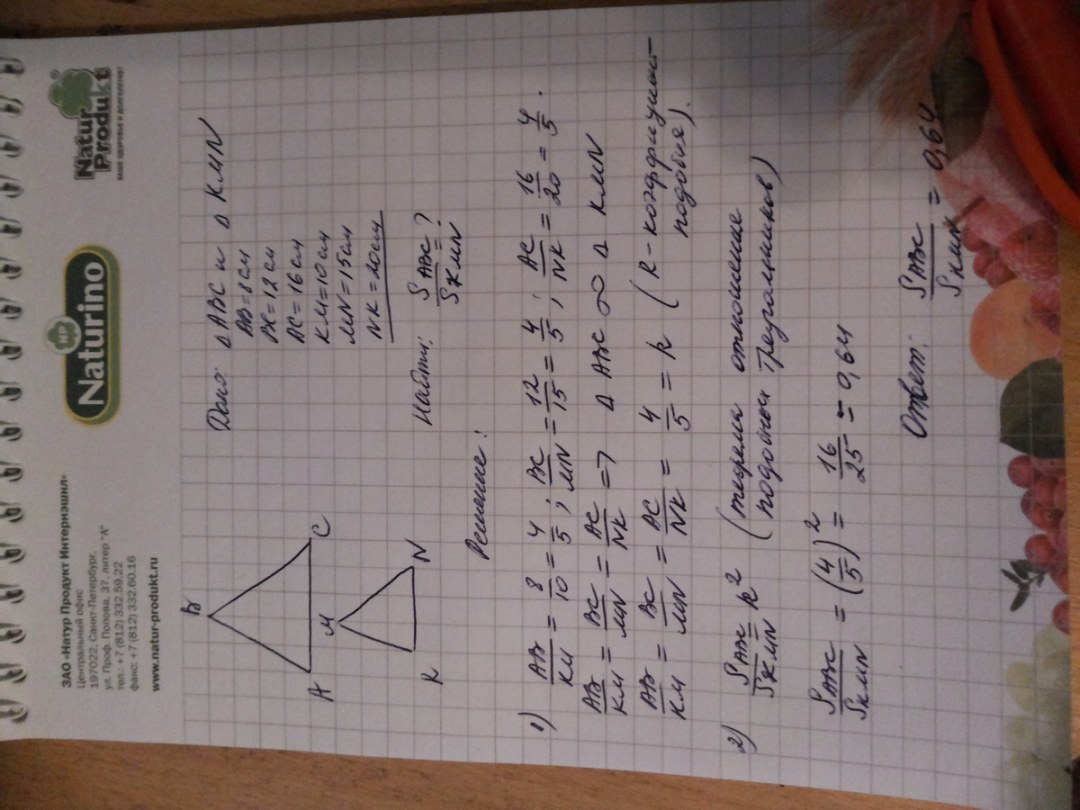 ЗАО «Натур Продукт Интернэшнл»
Центральный офис
197022, Санкт-Петербург,
ул. Проф. Попова, 37, литер "А"
тел.: +7 (812) 332.59.22
факс: +7 (812) 332.60.16
www.natur-produkt.ru
NP
Naturino
Natur
Produkt
ВАШЕ ЗДОРОВЬЕ И ДОЛГОЛЕТИЕ
B
A C
M
K N
Дано: Δ ABC и Δ KMN
AB = 8 см
BC = 12 см
AC = 16 см
KM = 10 см
MN = 15 см
NK = 20 см
Найти: S ABC / S KMN = ?
Решение:
1) AB/KM = 8/10 = 4/5; BC/MN = 12/15 = 4/5; AC/NK = 16/20 = 4/5.
AB/KM = BC/MN = AC/NK => Δ ABC ∞ Δ KMN
AB/KM = BC/MN = AC/NK = 4/5 = k (k - коэффициент
подобия).
2) S ABC / S KMN = k² (теорема отношение
подобных треугольников)
S ABC / S KMN = (4/5)² = 16/25 = 0,64
Ответ: S ABC / S KMN = 0,64.